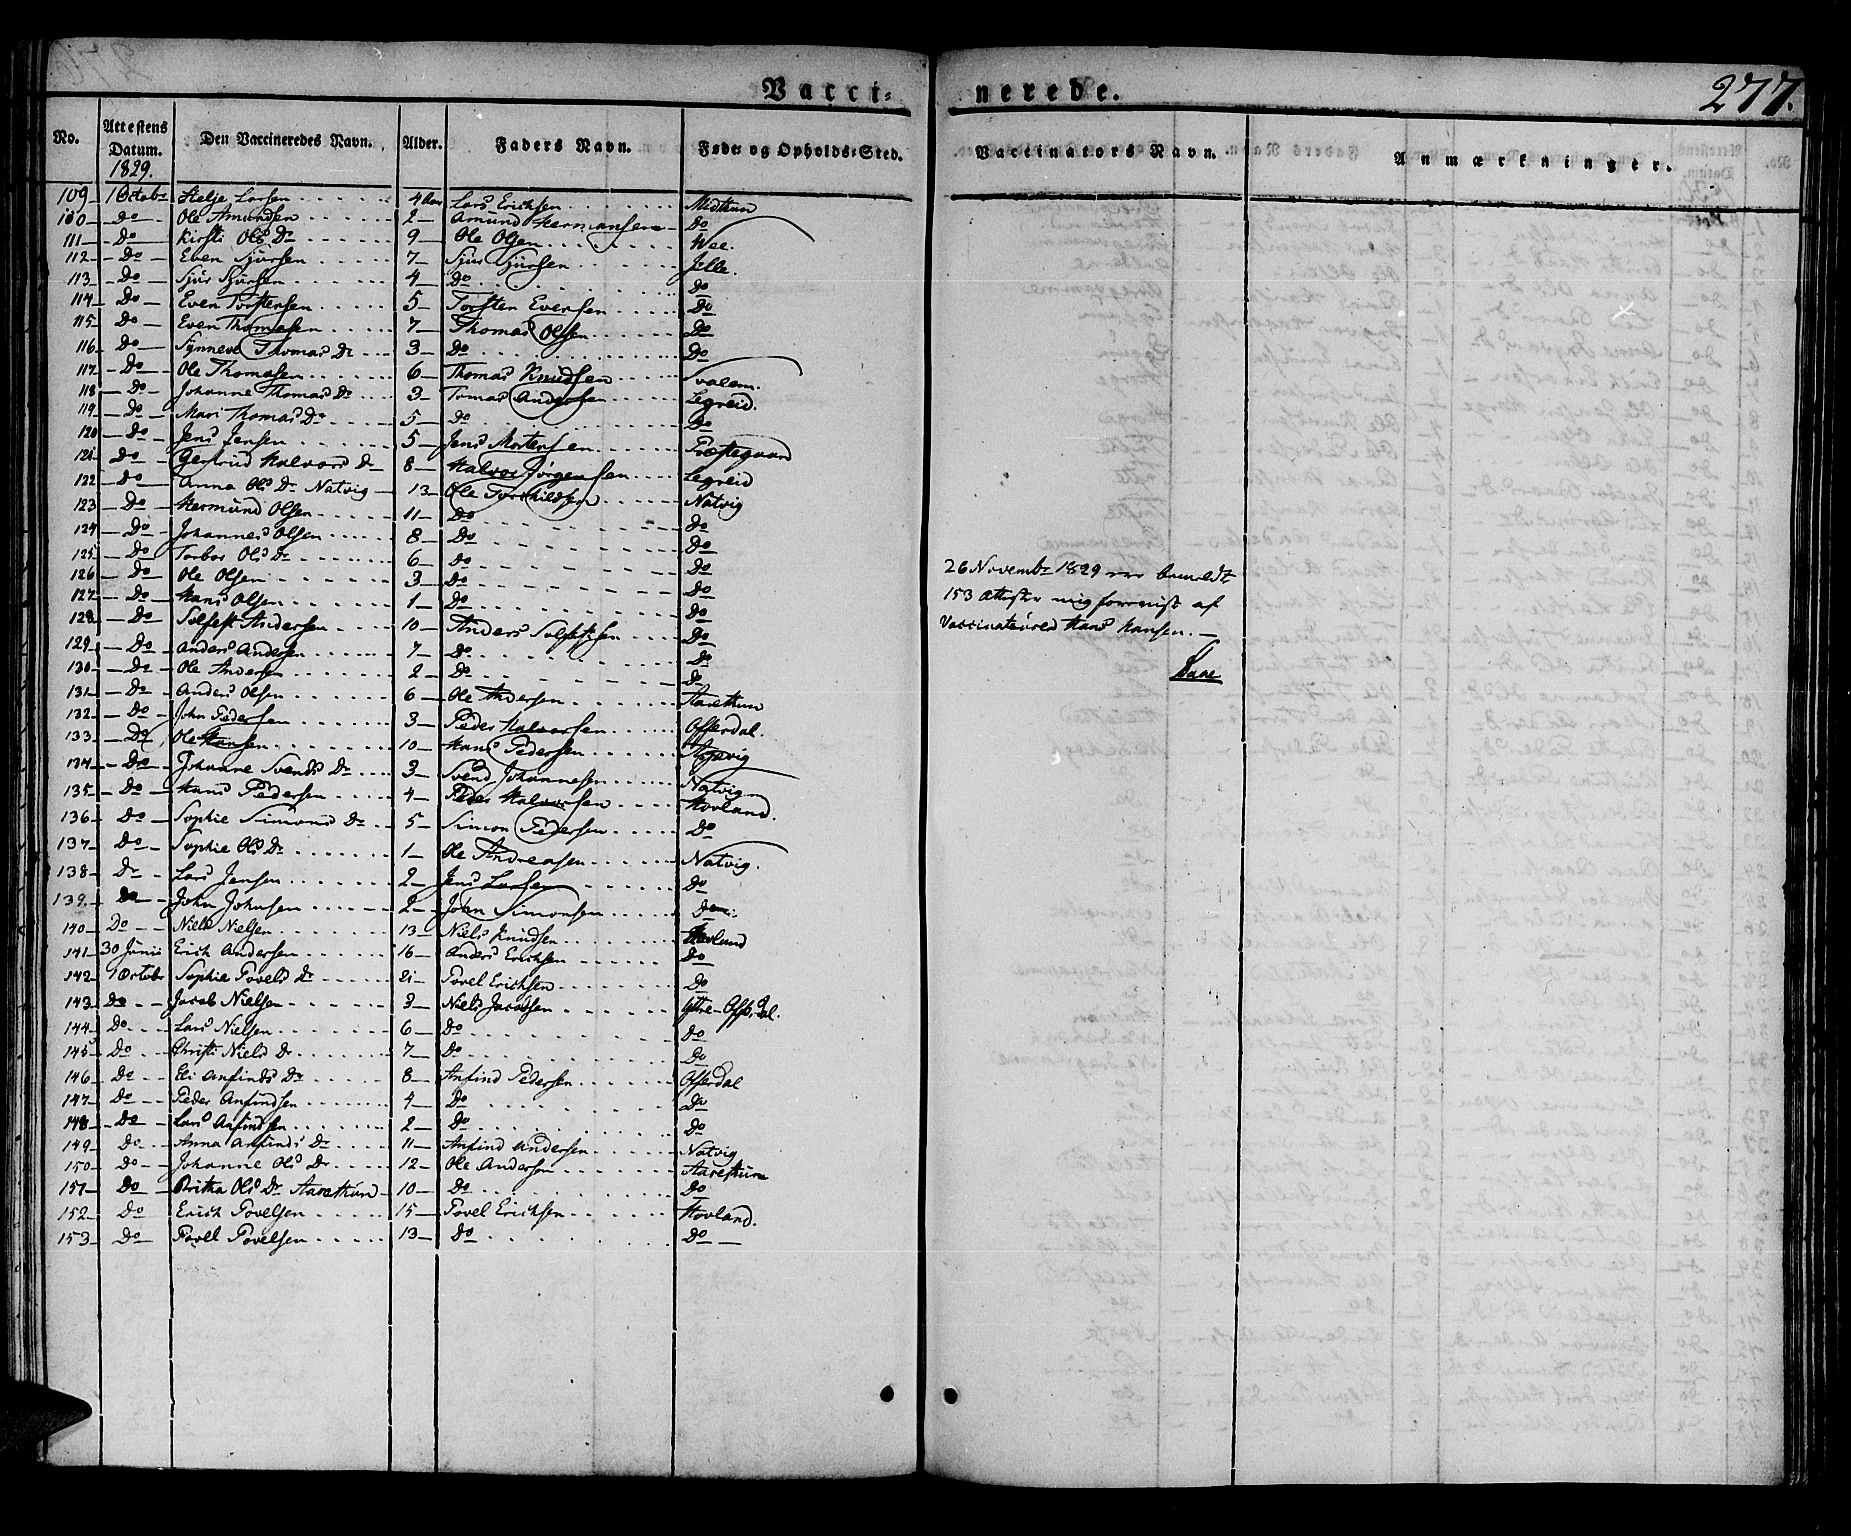 Vacci-
nerede.
277.
No. Attestens Datum. 1829. Den Vaccineredes Navn. Alder. Faders Navn. Føde- og Opholds-Sted. Vaccinators Navn. Anmærkninger.
109 1 Octobr Helje Larsen 4 Lars Erichsen Midthun
110 Do Ole Amunden 2 Amund Hermansen Do
111 Do Kirsti Ols Dr 9 Ole Olsen Wee.
112 Do Even Sjursen 7 Sjur Sjursen Jelle.
113 Do Sjur Sjursen 4 Do Do
114 Do Even Torstensen 5 Torsten Evensen Do
115 Do Even Thomasen 7 Thomas Olsen Do
116 Do Synneve Thomas Dr 3 Do Do
117 Do Ole Thomasen 6 Thomas Knudsen Svalem.
118 Do Johanne Thomas Dr 3 Tomas Andersen Legreid.
119 Do Mari Thomas Dr 5 Do Do
120 Do Jens Jensen 5 Jens Mortensen Præstegaard
121 Do Gertrud Halvors Dr 8 Halvor Jørgensen Legreid
122 Do Anna Ols Dr Natvig 13 Ole Torchildsen Natvig
123 Do Hermund Olsen 11 Do Do
124 Do Johannes Olsen 8 Do Do
125 Do Torbor Ols Dr 6 Do Do
126 Do Ole Olsen 3 Do Do
127 Do Hans Olsen 1 Do Do
128 Do Solfest Andersen 10 Anders Solfestsen Do
129 Do Anders Andersen 7 Do Do
130 Do Ole Andersen 2 Do Do
131 Do Anders Olsen 6 Ole Andersen Aarethun
132 Do John Pedersen 3 Peder Halvorsen Offerdal.
133 Do Ole Hansen 10 Hans Pedersen
134 Do Johanne Svends Dr 3 Svend Johannesen Natvig
135 Do Hans Pedersen 4 Peder Halvorsen Hovland.
136 Do Sophie Simons Dr 5 Simon Pedersen Do
137 Do Sophie Ols Dr 1 Ole Andreasen Natvig.
138 Do Lars Jensen 2 Jens Larsen Do
139. Do John Johnsen 2 John Simonsen Do
140 Do Niels Nielsen 13 Niels Knudsen Hovland
141 30 Junii Erich Andersen 16 Anders Erichsen Do
142 1 Octob Sophie Povels Dr 21 Povel Erichsen Do
143 Do Jacob Nielsen 3 Niels Jacobsen Yttre-Offerdal.
144 Do Lars Nielsen 6 Do Do
145 Do Christi Niels Dr 7 Do Do
146 Do Eli Anfinds Dr 8 Anfind Pedersen Offerdal
147 Do Peder Anfindsen 4 Do Do
148 Do Lars Anfindsen 2 Do Do
149 Do Anna Anfinds Dr 11 Anfind Andersen Natvig
150 Do Johanne Ols Dr 12 Ole Andersen Aarethun
151 Do Britha Ols Dr Aarethun 10 Do Do
152 Do Erich Povelsen 15 Povel Erichsen Hovland.
153 Do Povel Povelsen 13 Do Do
26 Novembr 1829 er anmeldt
153 Attester mig foreviist af
Vaccinateured Hans Hansen.